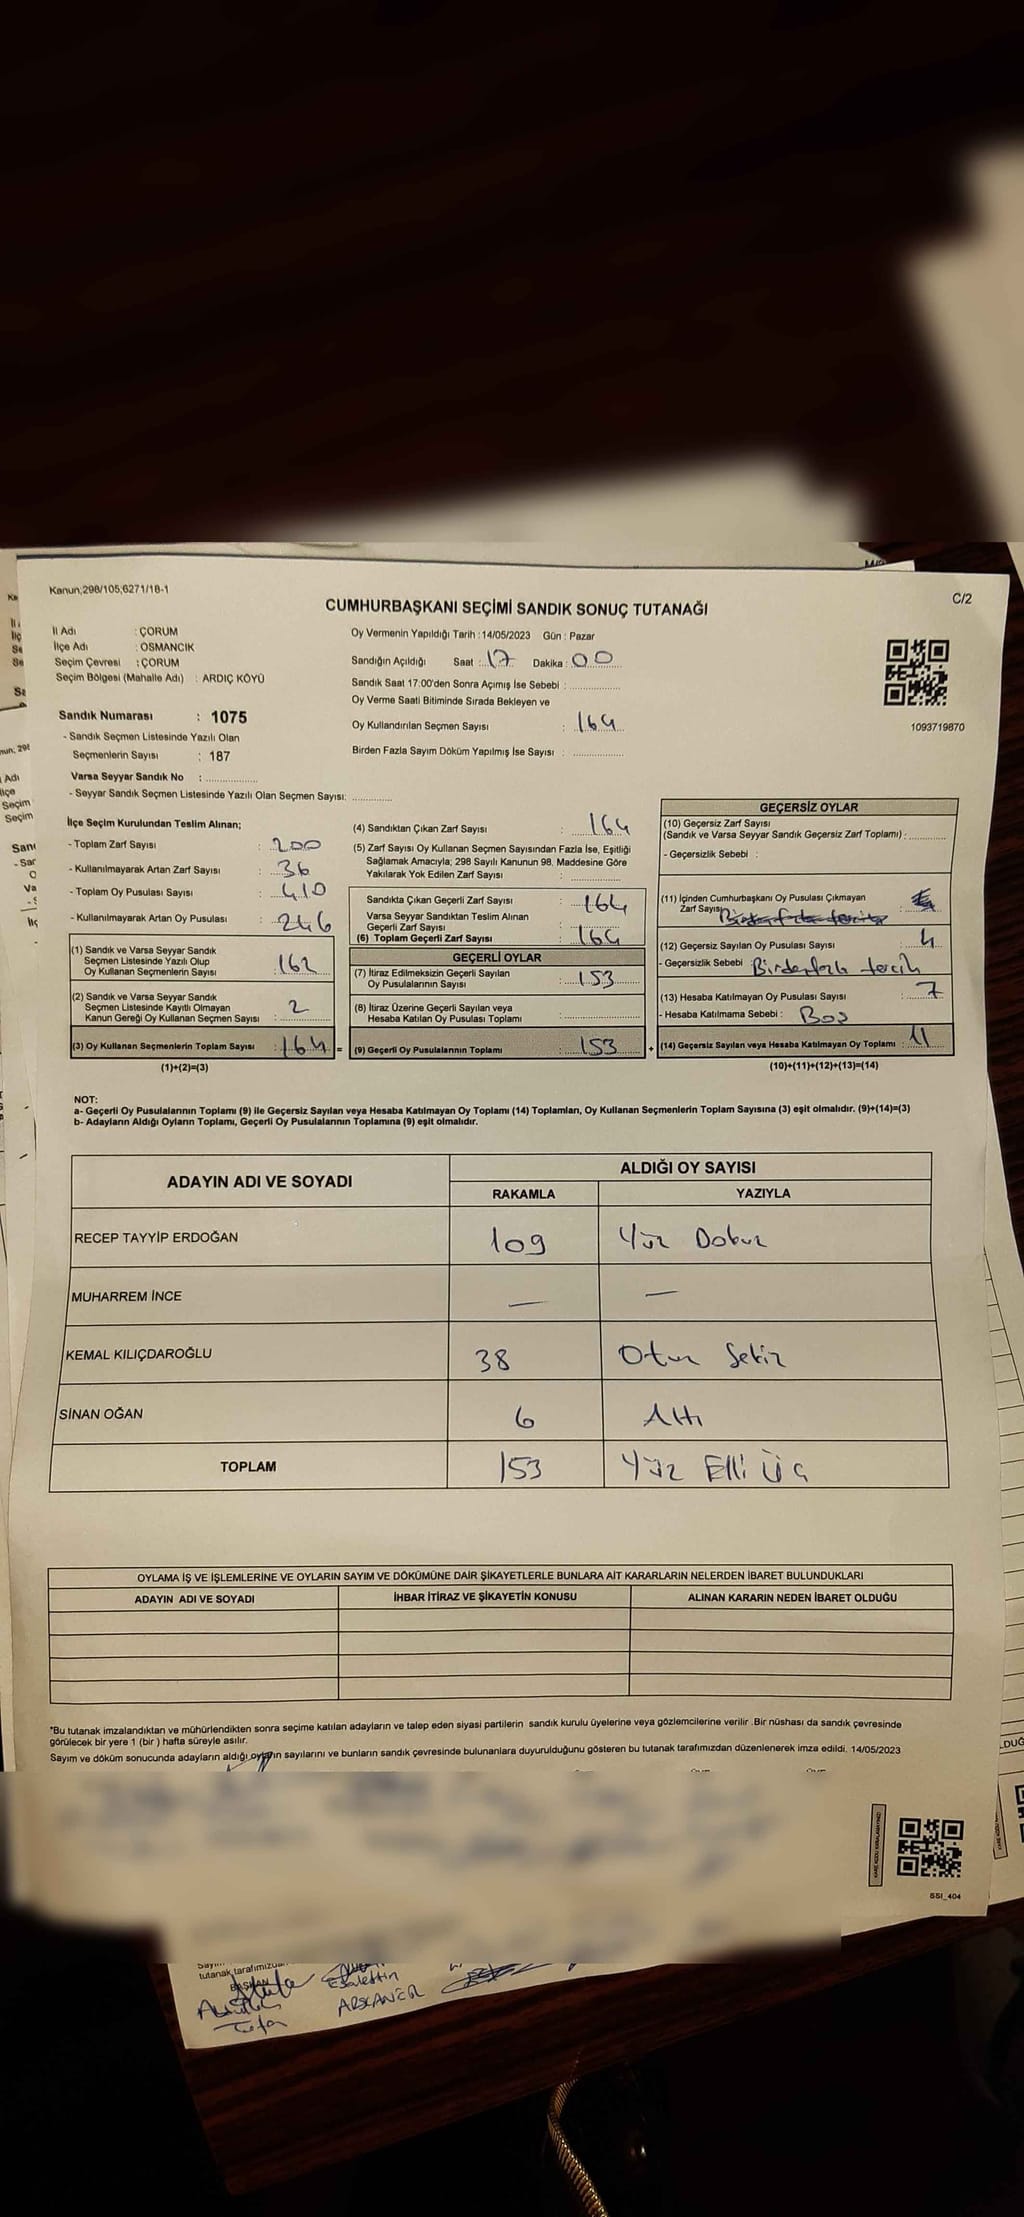 Kanun;298/105;6271/18-1
C/2
CUMHURBAŞKANI SEÇİMİ SANDIK SONUÇ TUTANAĞI
İl Adı : ÇORUM
İlçe Adı : OSMANCIK
Seçim Çevresi : ÇORUM
Seçim Bölgesi (Mahalle Adı) : ARDIÇ KÖYÜ
Sandık Numarası : 1075
- Sandık Seçmen Listesinde Yazılı Olan
Seçmenlerin Sayısı : 187
Varsa Seyyar Sandık No :
- Seyyar Sandık Seçmen Listesinde Yazılı Olan Seçmen Sayısı:
Oy Vermenin Yapıldığı Tarih : 14/05/2023 Gün : Pazar
Sandığın Açıldığı Saat : 17 Dakika : 00
Sandık Saat 17:00'den Sonra Açımış İse Sebebi :
Oy Verme Saati Bitiminde Sırada Bekleyen ve
Oy Kullandırılan Seçmen Sayısı : 164
Birden Fazla Sayım Döküm Yapılmış İse Sayısı :
1093719870
İlçe Seçim Kurulundan Teslim Alınan;
- Toplam Zarf Sayısı : 200
- Kullanılmayarak Artan Zarf Sayısı : 36
- Toplam Oy Pusulası Sayısı : 410
- Kullanılmayarak Artan Oy Pusulası : 246
(1) Sandık ve Varsa Seyyar Sandık
Seçmen Listesinde Yazılı Olup
Oy Kullanan Seçmenlerin Sayısı : 162
(2) Sandık ve Varsa Seyyar Sandık
Seçmen Listesinde Kayıtlı Olmayan
Kanun Gereği Oy Kullanan Seçmen Sayısı : 2
(3) Oy Kullanan Seçmenlerin Toplam Sayısı : 164 =
(1)+(2)=(3)
(4) Sandıktan Çıkan Zarf Sayısı : 164
(5) Zarf Sayısı Oy Kullanan Seçmen Sayısından Fazla İse, Eşitliği
Sağlamak Amacıyla; 298 Sayılı Kanunun 98. Maddesine Göre
Yakılarak Yok Edilen Zarf Sayısı :
Sandıkta Çıkan Geçerli Zarf Sayısı : 164
Varsa Seyyar Sandıktan Teslim Alınan
Geçerli Zarf Sayısı :
(6) Toplam Geçerli Zarf Sayısı : 164
GEÇERLİ OYLAR
(7) İtiraz Edilmeksizin Geçerli Sayılan
Oy Pusulalarının Sayısı : 153
(8) İtiraz Üzerine Geçerli Sayılan veya
Hesaba Katılan Oy Pusulası Toplamı :
(9) Geçerli Oy Pusulalarının Toplamı : 153 +
GEÇERSİZ OYLAR
(10) Geçersiz Zarf Sayısı
(Sandık ve Varsa Seyyar Sandık Geçersiz Zarf Toplamı) :
- Geçersizlik Sebebi :
(11) İçinden Cumhurbaşkanı Oy Pusulası Çıkmayan
Zarf Sayısı
(12) Geçersiz Sayılan Oy Pusulası Sayısı : 4
- Geçersizlik Sebebi : Birden fazla tercih
(13) Hesaba Katılmayan Oy Pusulası Sayısı : 7
- Hesaba Katılmama Sebebi : Boş
(14) Geçersiz Sayılan veya Hesaba Katılmayan Oy Toplamı : 11
(10)+(11)+(12)+(13)=(14)
NOT:
a- Geçerli Oy Pusulalarının Toplamı (9) ile Geçersiz Sayılan veya Hesaba Katılmayan Oy Toplamı (14) Toplamları, Oy Kullanan Seçmenlerin Toplam Sayısına (3) eşit olmalıdır. (9)+(14)=(3)
b- Adayların Aldığı Oyların Toplamı, Geçerli Oy Pusulalarının Toplamına (9) eşit olmalıdır.
ADAYIN ADI VE SOYADI
ALDIĞI OY SAYISI
RAKAMLA YAZIYLA
RECEP TAYYİP ERDOĞAN 109 Yüz Dokuz
MUHARREM İNCE — —
KEMAL KILIÇDAROĞLU 38 Otuz Sekiz
SİNAN OĞAN 6 Altı
TOPLAM 153 Yüz Elli Üç
OYLAMA İŞ VE İŞLEMLERİNE VE OYLARIN SAYIM VE DÖKÜMÜNE DAİR ŞİKAYETLERLE BUNLARA AİT KARARLARIN NELERDEN İBARET BULUNDUKLARI
ADAYIN ADI VE SOYADI İHBAR İTİRAZ VE ŞİKAYETİN KONUSU ALINAN KARARIN NEDEN İBARET OLDUĞU
*Bu tutanak imzalandıktan ve mühürlendikten sonra seçime katılan adayların ve talep eden siyasi partilerin sandık kurulu üyelerine veya gözlemcilerine verilir .Bir nüshası da sandık çevresinde
görülecek bir yere 1 (bir ) hafta süreyle asılır.
Sayım ve döküm sonucunda adayların aldığı oyların sayılarını ve bunların sandık çevresinde bulunanlara duyurulduğunu gösteren bu tutanak tarafımızdan düzenlenerek imza edildi. 14/05/2023
SSI_404
tutanak tarafımızdan
BAŞKAN
Esalettin
ARSLANER